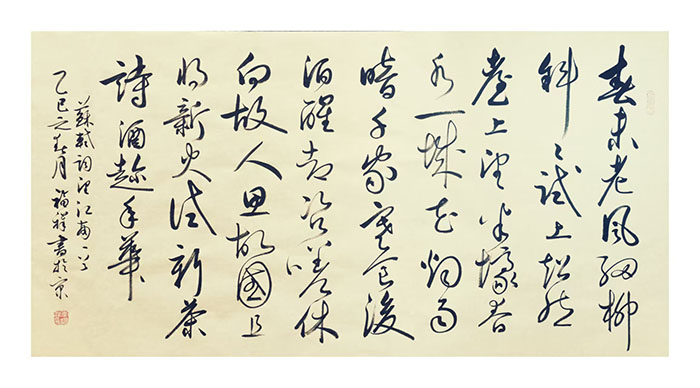 春未老風細柳
斜〻試上超然
臺上望半壕春
水一城花烟雨
暗千家寒食後
酒醒却咨嗟休
向故人思故國且
將新火試新茶
詩酒趁年華
蘇軾詞望江南一首
乙巳之春月福祥書於京